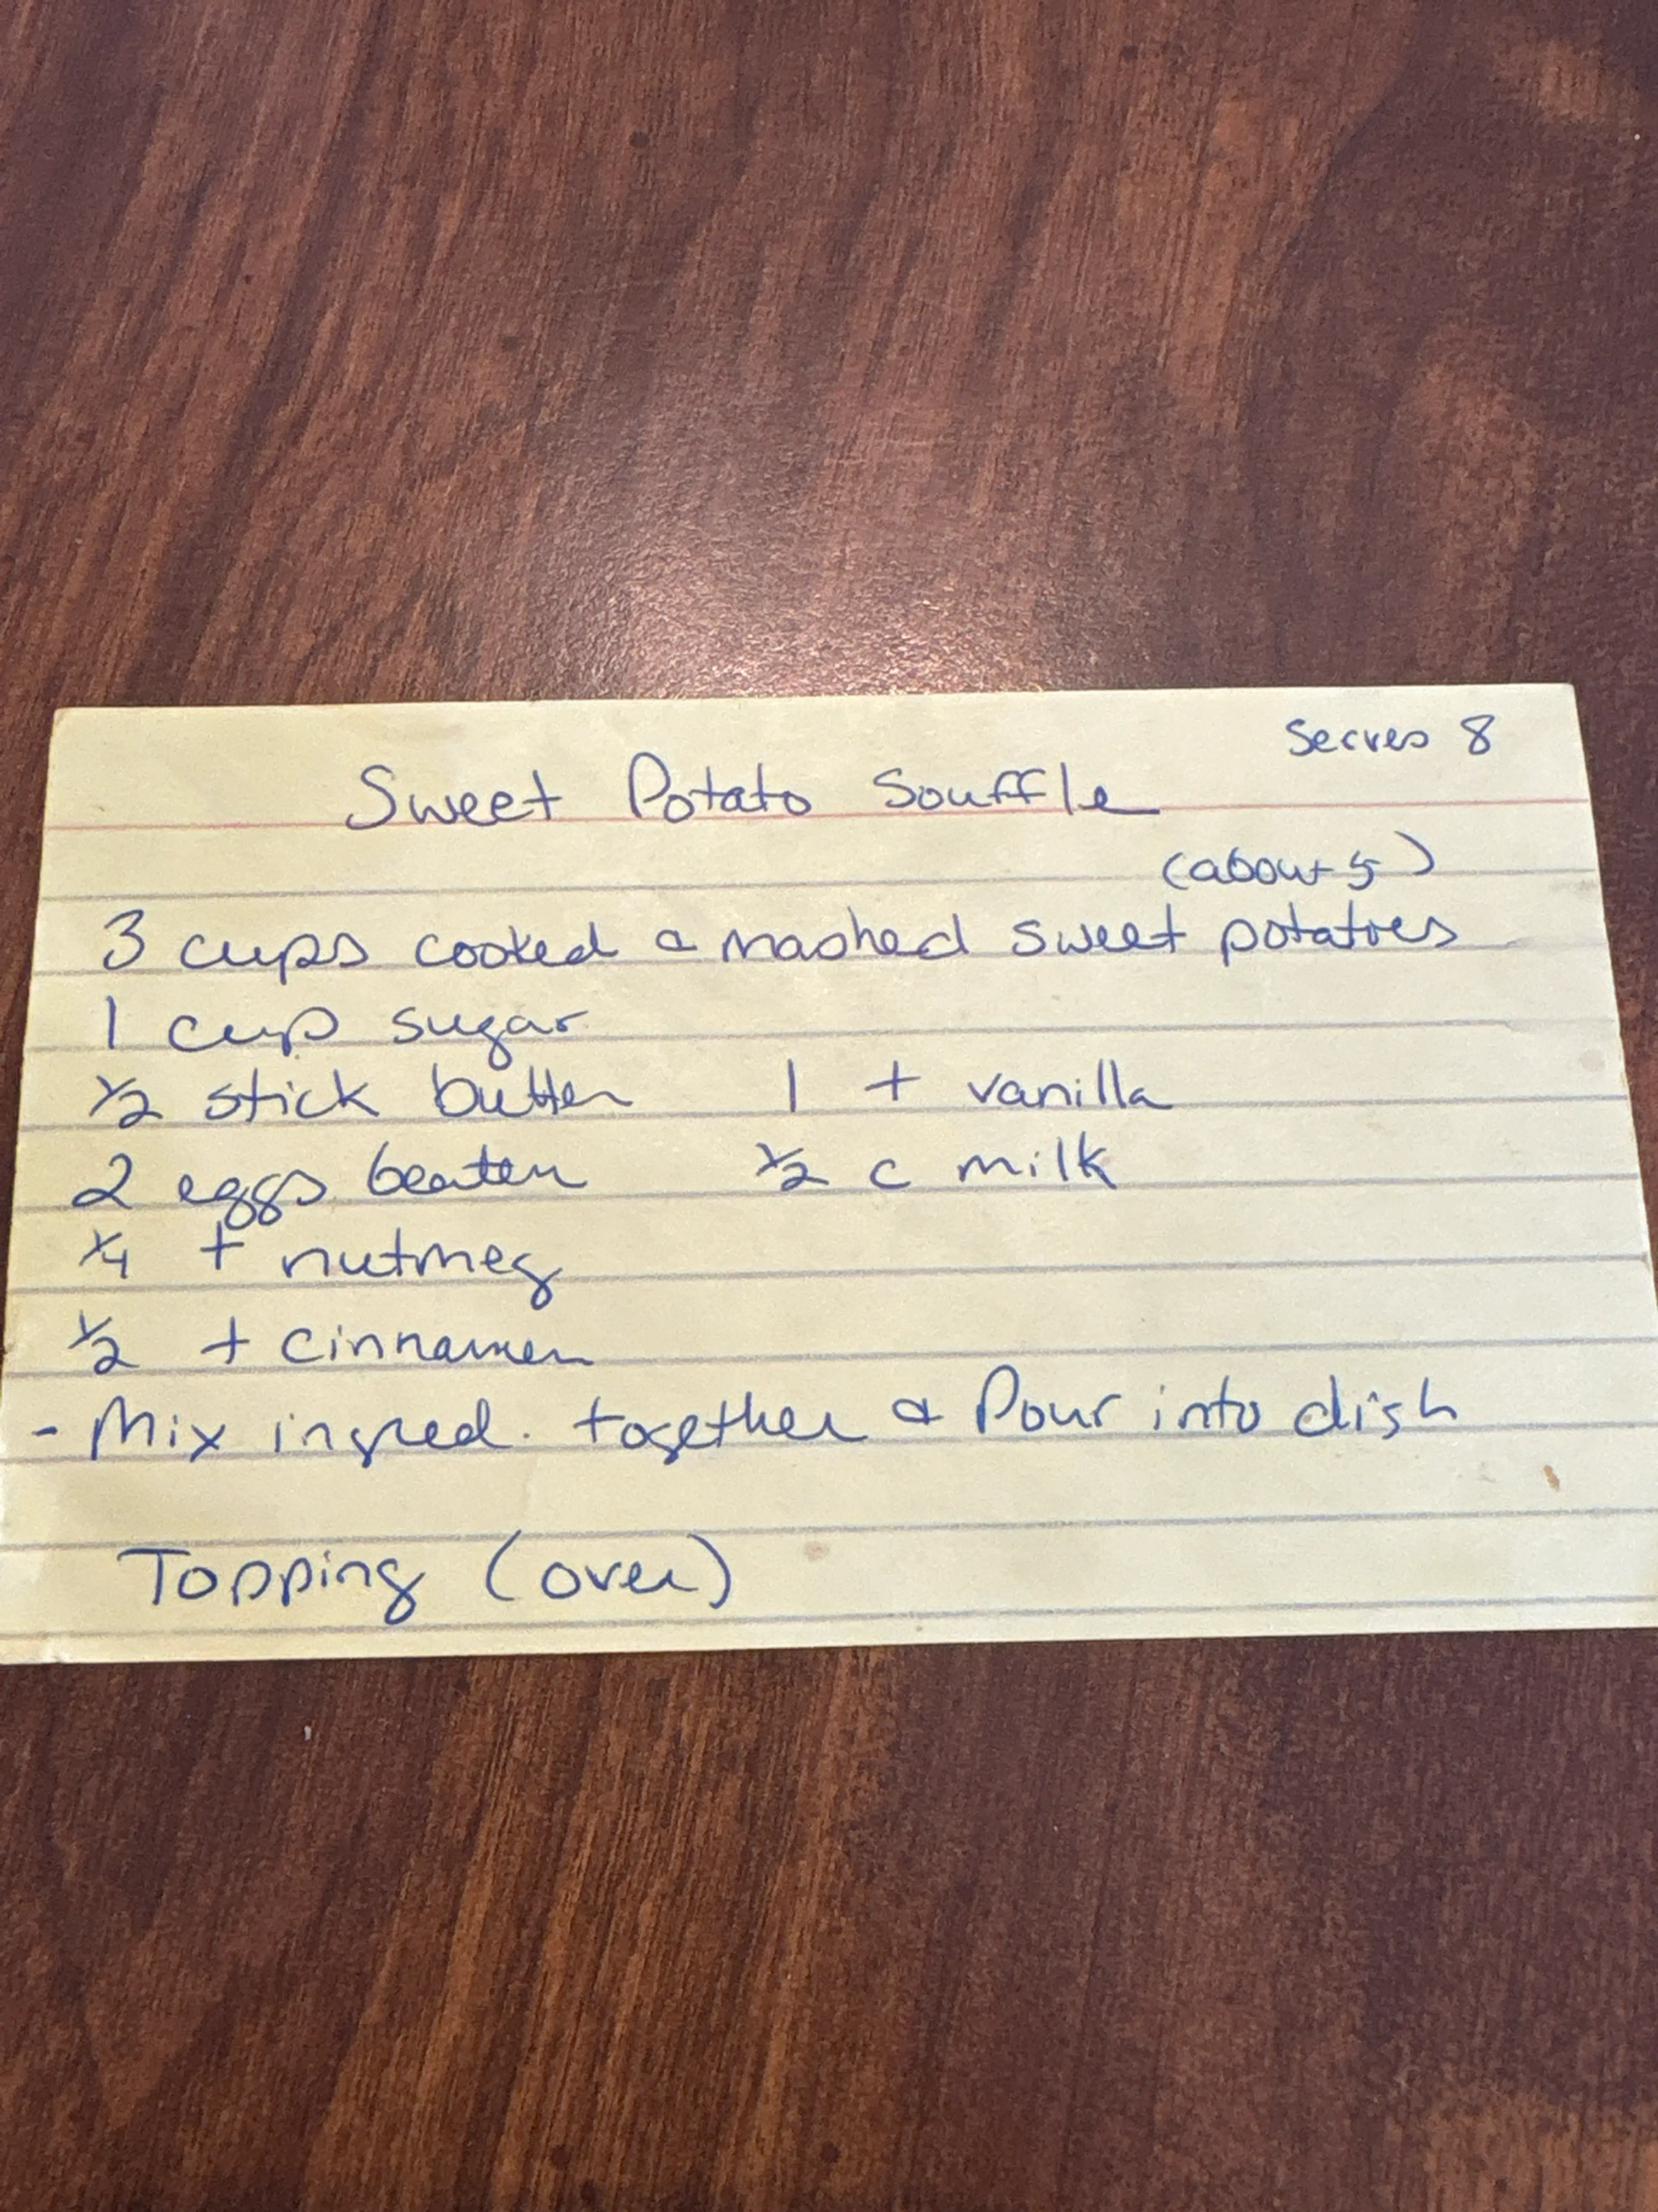 Serves 8
Sweet Potato Souffle
(about 5)
3 cups cooked & mashed sweet potatoes
1 cup sugar
1/2 stick butter 1 t vanilla
2 eggs beaten 1/2 c milk
1/4 t nutmeg
1/2 t cinnamen
- Mix ingred. together & Pour into dish
Topping (over)